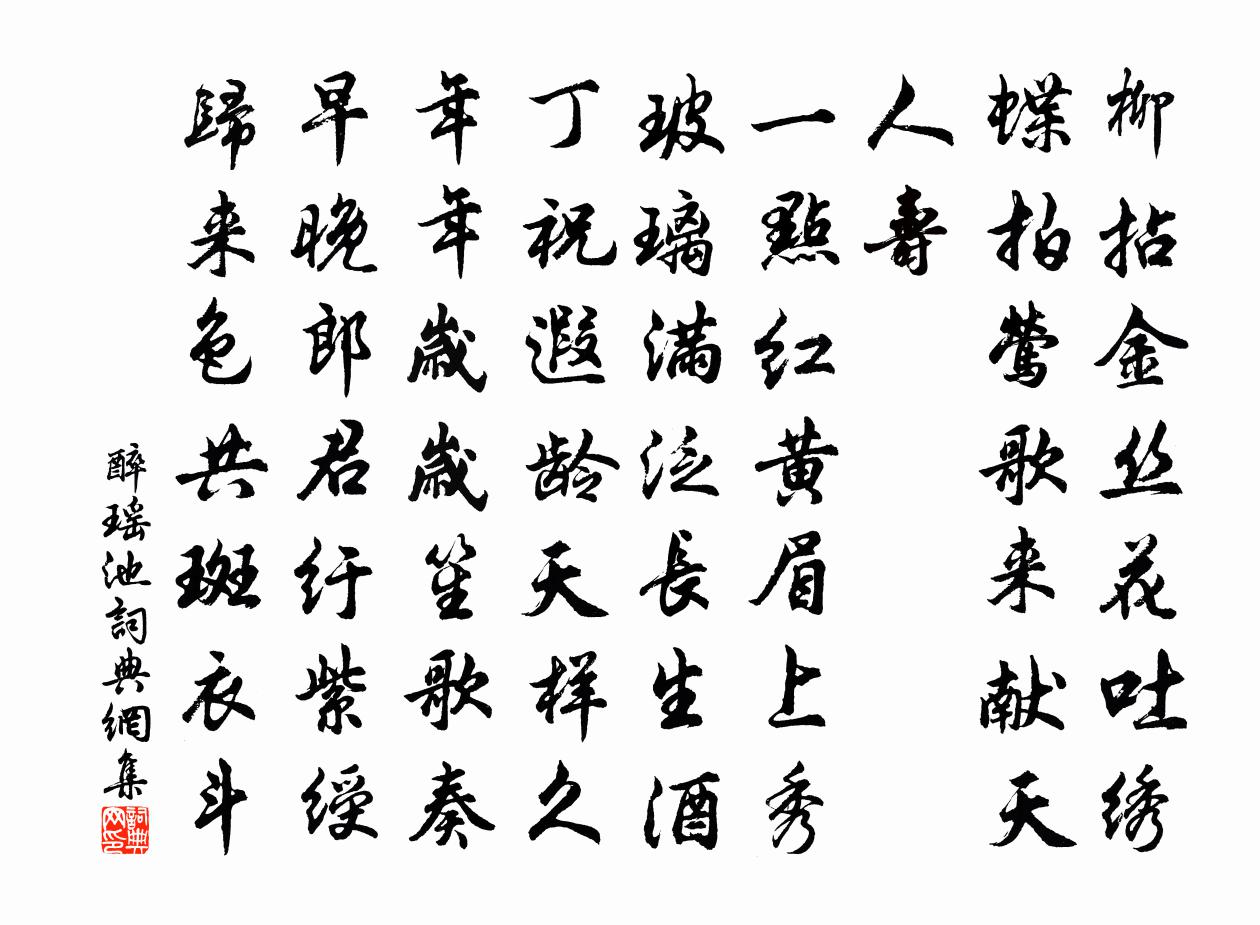 柳拈金丝花吐绣
蝶拍莺歌来献天
人壽
一點红黄眉上秀
玻璃满泛長生酒
丁祝遐龄天样久
年年歲歲笙歌奏
早晚郎君纡紫綬
歸来色共斑衣斗
醉瑶池詞典網集
詞典网印